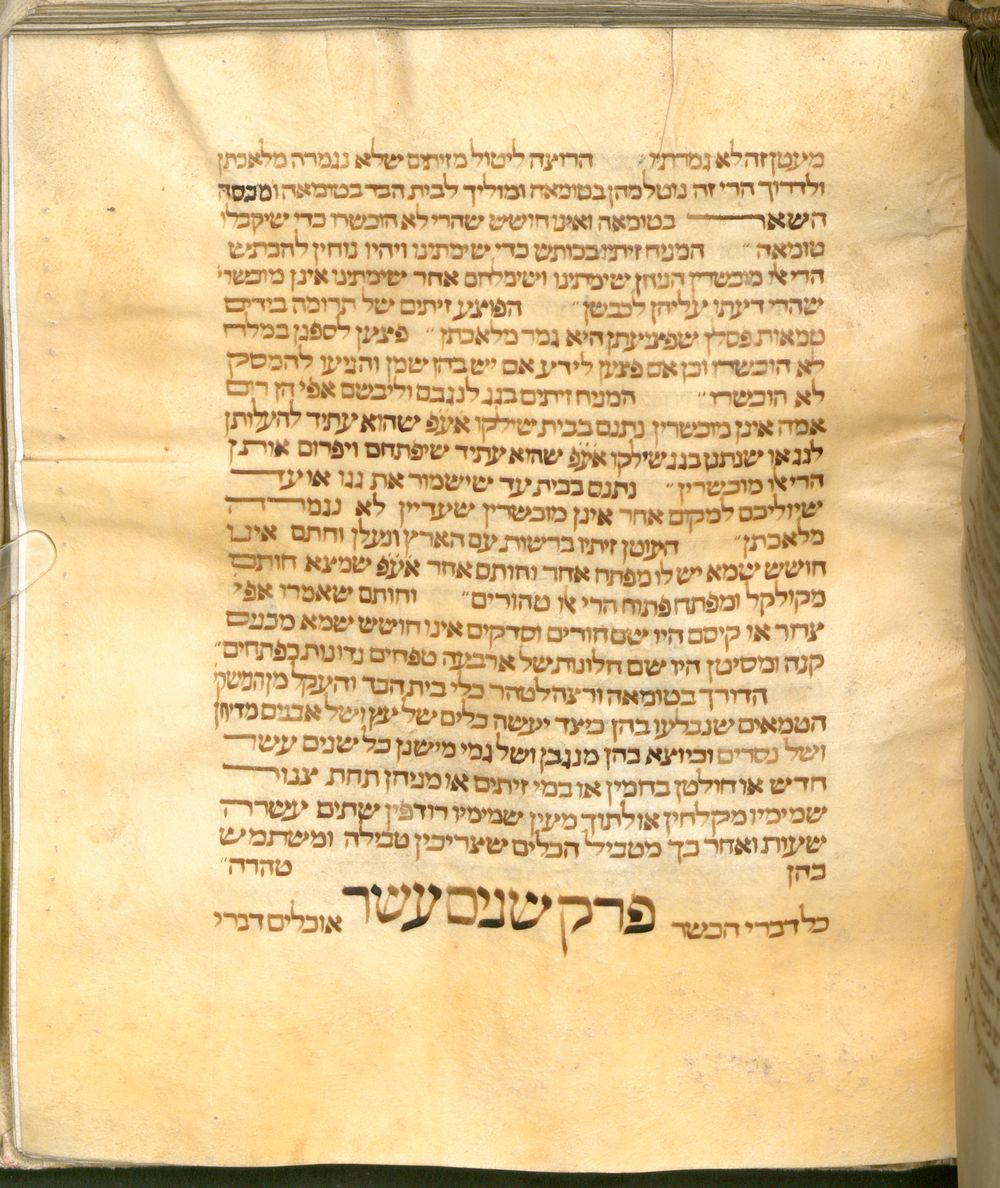 מעטן זה לא נגמרתיו הרוצה ליטול מזיתים שלא נגמרה מלאכתן
ולדרוך הרי זה נוטל מהן בטומאה ומוליך לבית הבד בטומאה ומכסה
השאר בטומאה ואינו חושש שהרי לא הוכשרו כדי שיקבלו
טומאה״ המניח זיתיו בכותש כדי שימתינו ויהיו נוחין להכתש
הרי אלו מוכשרין הניחן שימתינו וישמלחם אחר שימתינו אינן מוכשרי
שהרי דעתו עליהן לכבשן״ הפוצע זיתים של תרומה בידים
טמאות פסלן שפציעתן היא גמר מלאכתן״ פצען לספגן במלח
לא הוכשרו וכן אם פצען לידע אם יש בהן שמן והגיעו להמסק
לא הוכשרו״ המניח זיתים בגג לגנבם וליבשם אפי׳ הן רום
אמה אינן מוכשרין נתנם בבית שילקו אע׳פ שהוא עתיד להעלותן
לגג או שנתנן בגג שילקו אע׳פ שהוא עתיד שיפתחם ויפרום אותן
הרי אלו מוכשרין״ נתנם בבית עד שישמור את גגו או עד
שיוליכם למקום אחר אינן מוכשרין שעדיין לא נגמרה
מלאכתן״ העוטן זיתיו ברשות עם הארץ ונעלן וחתם אינו
חושש שמא יש לו מפתח אחר וחותם אחר אע׳פ שמצא חותם
מקולקל ומפתח פתוח הרי אלו טהורים״ וחותם שאמרו אפי׳
צרור או קיסם היו שם חורים וסדקים אינו חושש שמא מכנס
קנה ומסיטן היו שם חלונות של ארבעה טפחים נדונות כפתחים״
הדורך בטומאה ורצה לטהר כלי בית הבד והעקל מן המשקי
הטמאים שנבלעו בהן כיצד יעשה כלים של עץ ושל אבנים מדיחן
ושל נסרים וכיוצא בהן מנגבן ושל גמי מיישנן כל שנים עשר
חדש או חולטן בחמין או במי זיתים או מניחן תחת צנור
שמימיו מקלחין או לתוך מעין שמימיו רודפין שתים עשרה
שעות ואחר כך מטביל הכלים שצריכין טבילה ומשתמש
בהן טהרה״
פרק שנים עשר
כל דברי הכשר אוכלים דברי